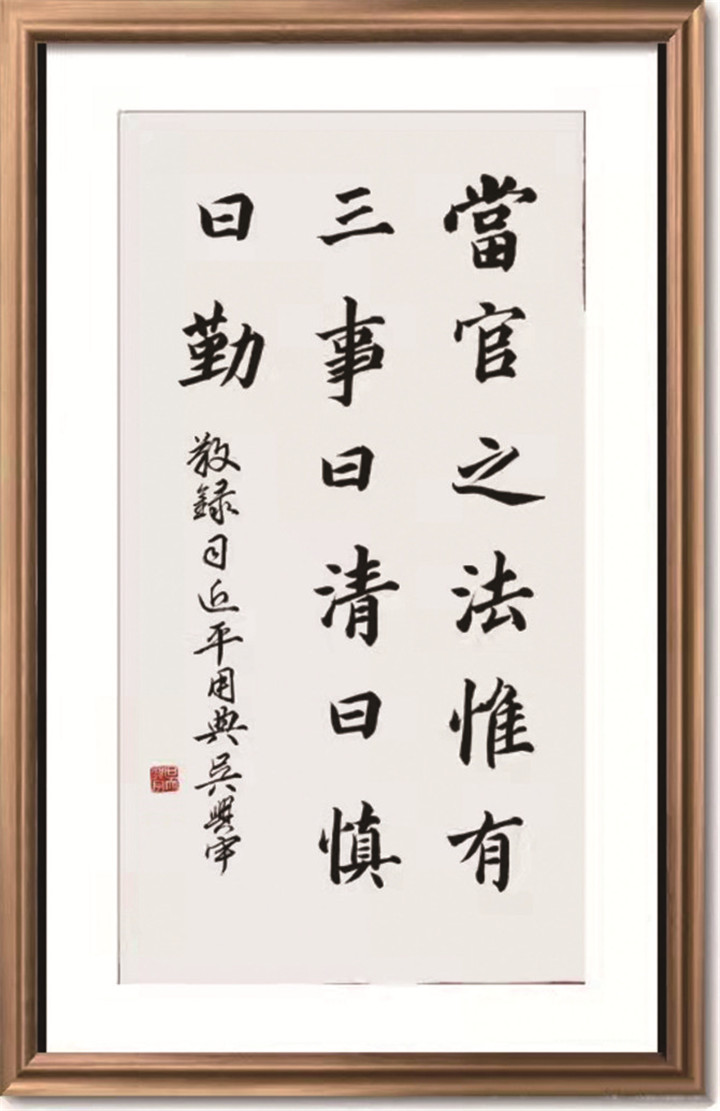 當官之法惟有
三事曰清曰慎
曰勤
敬録习近平用典吴興軍